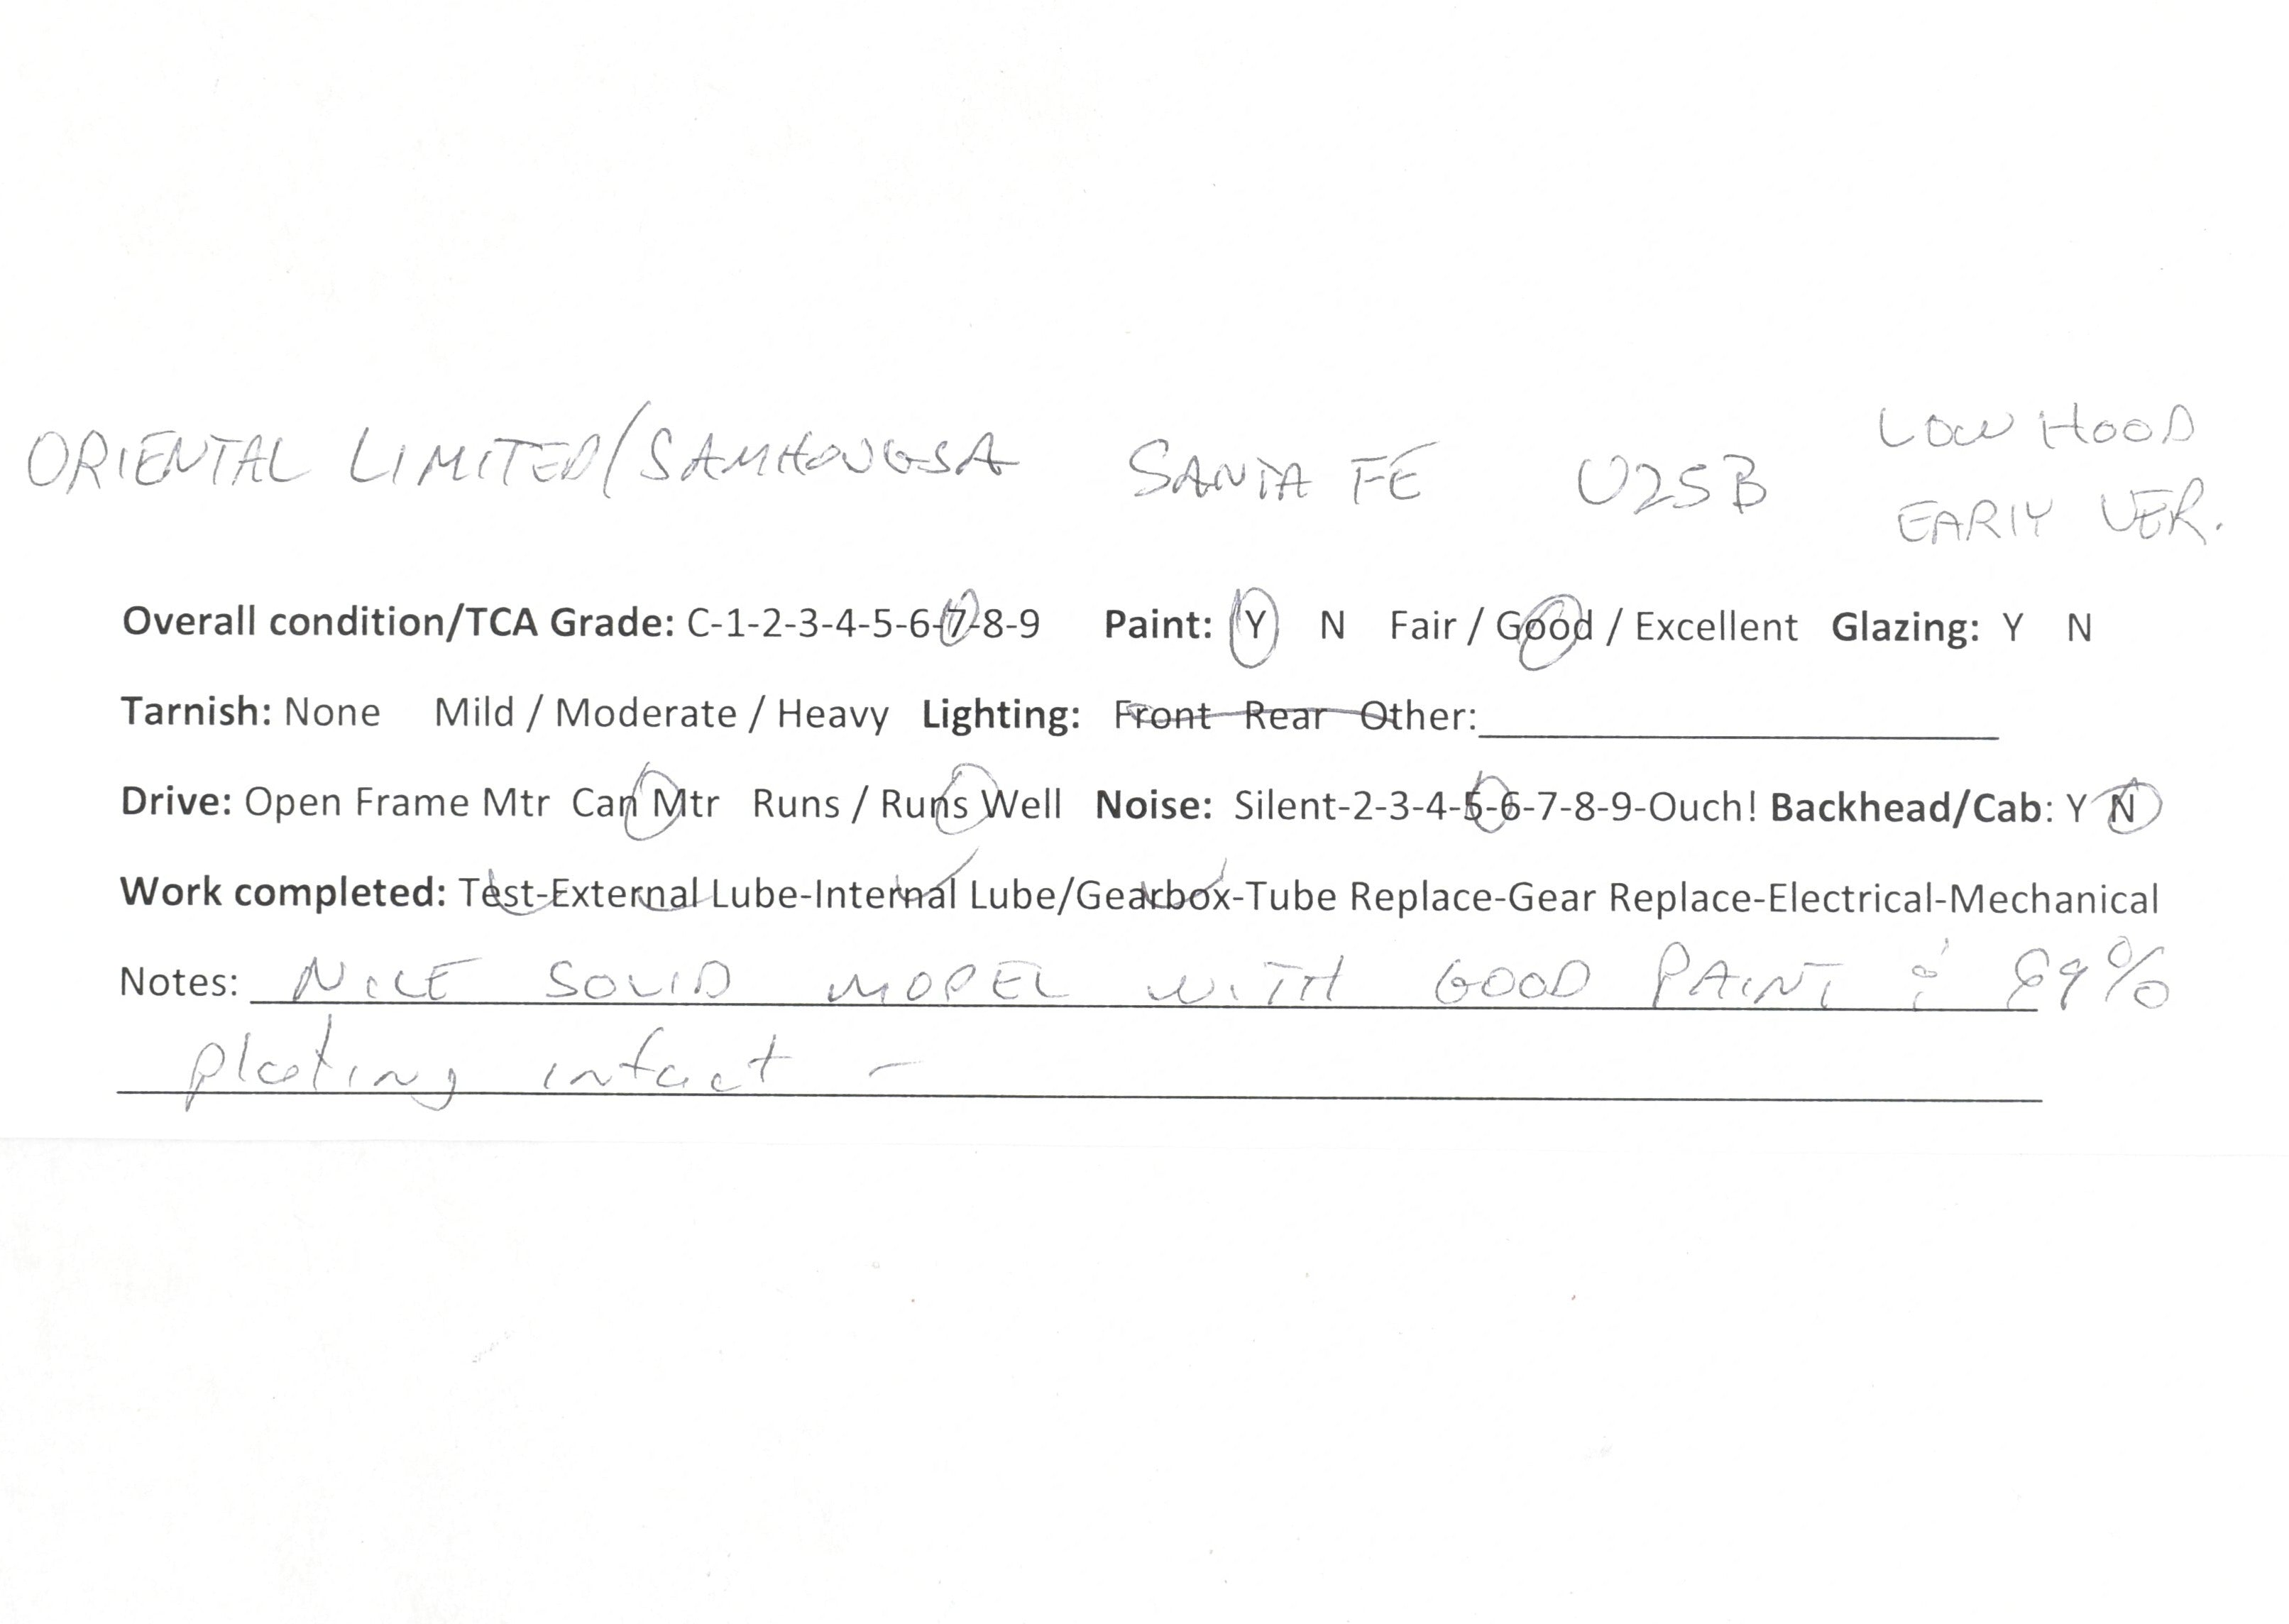 ORIENTAL LIMITED/SAMHONGSA SANTA FE U25B LOW HOOD
EARLY VER.
Overall condition/TCA Grade: C-1-2-3-4-5-6-7-8-9 Paint: Y N Fair / Good / Excellent Glazing: Y N
Tarnish: None Mild / Moderate / Heavy Lighting: Front Rear Other:
Drive: Open Frame Mtr Can Mtr Runs / Runs Well Noise: Silent-2-3-4-5-6-7-8-9-Ouch! Backhead/Cab: Y N
Work completed: Test-External Lube-Internal Lube/Gearbox-Tube Replace-Gear Replace-Electrical-Mechanical
Notes: NICE SOLID MODEL WITH GOOD PAINT & 89%
plating intact -